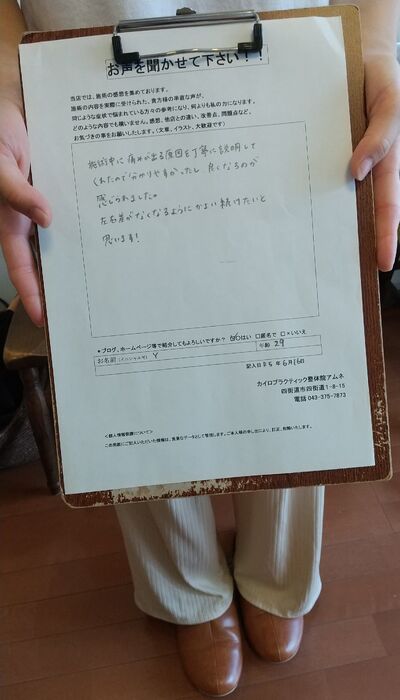 お声を聞かせて下さい!!
当店では、施術の感想を集めております。
施術の内容を実際に受けられた、貴方様の率直な声が、
同じような症状で悩まれている方々の参考になり、何よりも私の力になります。
どのような内容でも構いません。感想、他店との違い、改善点、問題点など、
お気づきの事をお願いしたします。(文章、イラスト、大歓迎です)
施術中に痛みが出る原因を丁寧に説明して
くれたので分かりやすかったし良くなるのが
感じられました。
左右差がなくなるようにかよい続けたいと
思います!
●ブログ、ホームページ等で紹介してもよろしいですか? はい □匿名で □×いいえ
お名前(イニシャル可) Y 年齢 29
記入日 R5年6月16日
カイロプラクティック整体院アムネ
四街道市四街道1-8-15
電話 043-375-7873
<個人情報保護について>
この用紙にご記入いただいた情報は、貴重なデータとして管理します。ご本人様の申し出により、訂正、削除いたします。